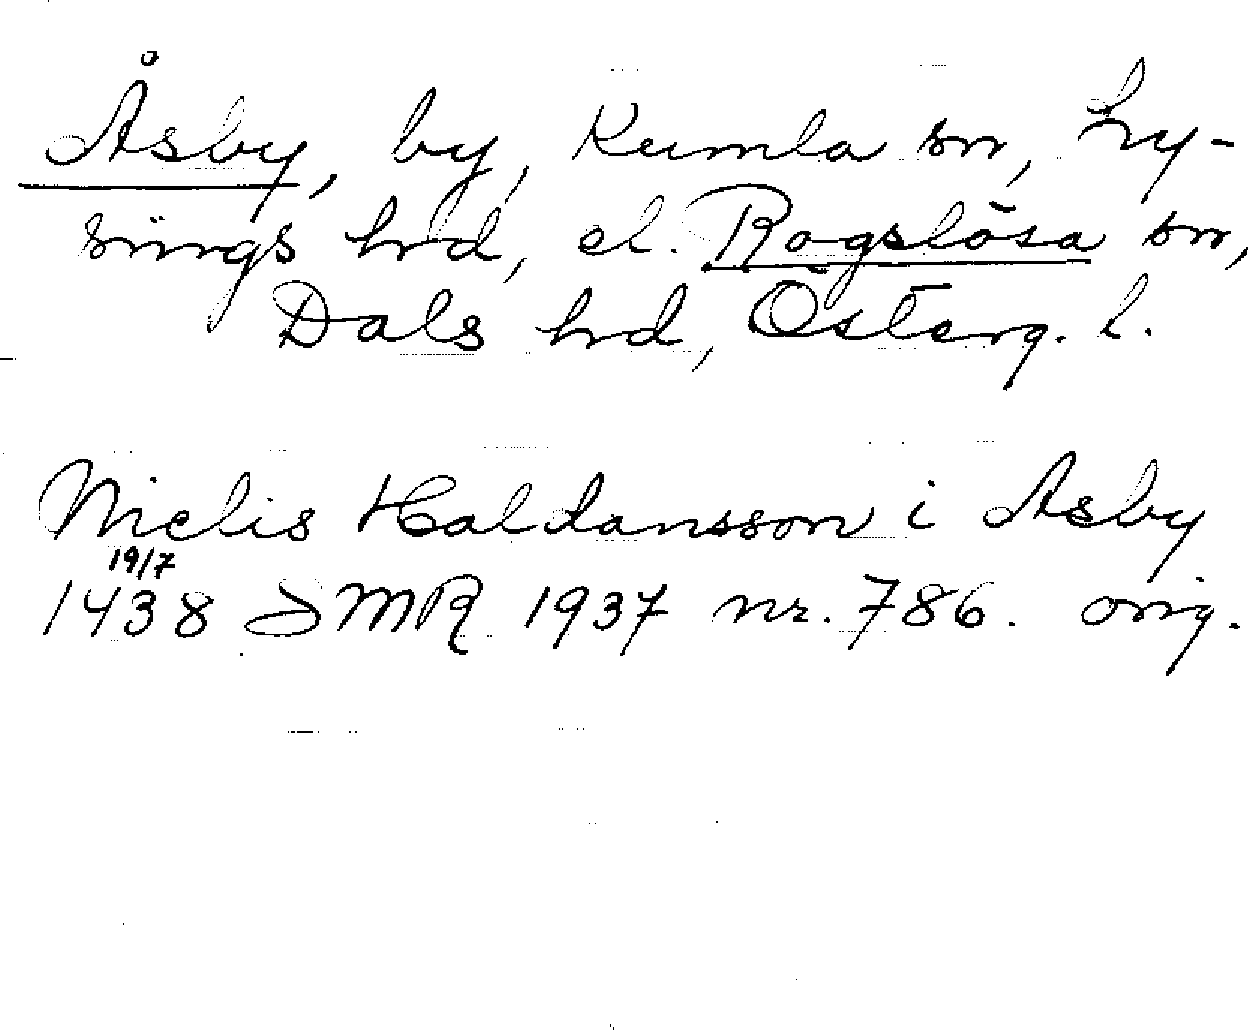 Åsby, by, Kumla sn, Ly-
sings hrd, el. Rogslösa sn,
Dals hrd, Österg. l.
Nielis Haldansson i Asby
19/7
1438 SMR 1937 nr. 786. orig.